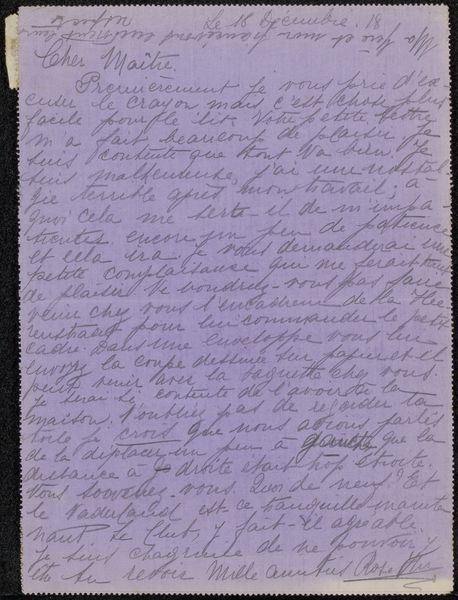 Le 16 Décembre. 18
Ma
Cher Maître,
Premièrement je vous prie d'ex-
cuser le crayon mais c'est chose plus
facile pour le lit. Votre petite lettre
m'a fait beaucoup de plaisir. Je
suis contente que tout va bien. Je
suis malheureuse, j'ai une nostal-
gie terrible après mon travail; à
quoi cela me sert-il de m'impa-
tienter encore un peu de patience
et cela ira. Je vous demanderai une
petite complaisance qui me ferait tant
de plaisir. Ne voudriez-vous pas faire
venir chez vous l'encadreur de la Hee-
renstraat pour lui commander le petit
cadre. Dans une enveloppe vous lui
la coupe dessinée sur papier et il
peut venir avec la baguette chez vous.
Je serai si contente de l'avoir à la
maison. N'oubliez pas de regarder la
toile je crois que nous avions parlés
de la déplacer un peu à gauche que la
distance à droite était trop étroite.
Vous souvenez-vous. Quoi de neuf? Et
le Vaderland est-ce tranquille mainte
nant. Le Club, y fait-il agréable.
Je suis chagrinée de ne pouvoir y
être. Au revoir Mille amitiés